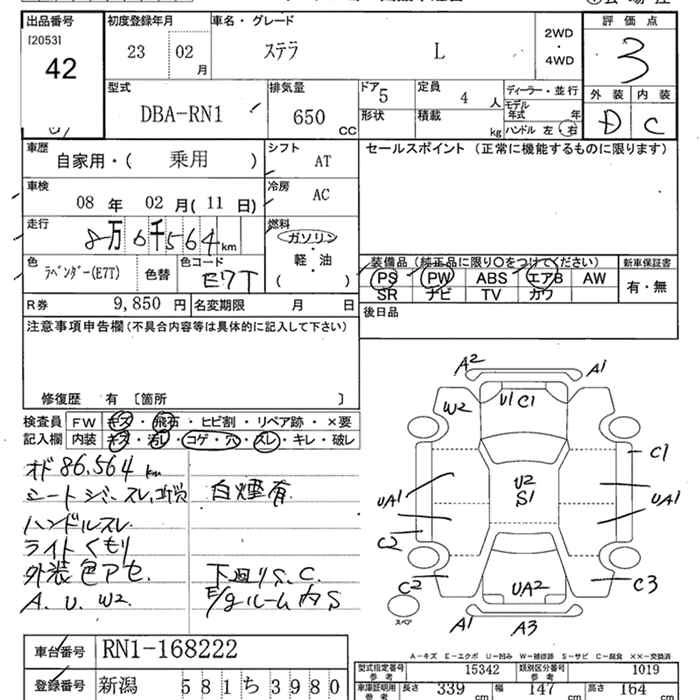 出品番号 初度登録年月 車名・グレード 評価点
[2053]
42
23 02 月
ステラ L
2WD
4WD
3
型式 排気量 ドア 定員 ディーラー・並行 外装 内装
DBA-RN1 650 CC 5 4 人
モデル年式 年
形状 積載 kg ハンドル 左・右
D C
車歴 シフト セールスポイント (正常に機能するものに限ります)
自家用・( 乗用 ) AT
車検 冷房
08 年 02 月 ( 11 日) AC
走行 燃料
8万6千564 km ガソリン
・
軽・油
( )
色 色替 色コード
ラベンダー(E7T) E7T
装備品 (純正品に限り○をつけてください) 新車保証書
PS PW ABS エアB AW 有・無
SR ナビ TV カワ
R券 9,850 円 名変期限 月 日
後日品
注意事項申告欄(不具合内容等は具体的に記入して下さい)
修復歴 有 〔箇所 〕
検査員 FW キズ・飛石・ヒビ割・リペア跡・×要
記入欄 内装 キズ・汚レ・コゲ・穴・スレ・キレ・破レ
オド 86,564 km
シートシミ、スレ、コゲ穴 白煙有
ハンドルスレ
ライトくもり
外装色アセ 下廻りS.C.
A. U. W2 E/gルーム内S
A2 A1
W2 U1 C1
C1
U2
S1
UA1 UA1
C2
C2 UA2 C3
スペア A1 A3
A－キズ E－エクボ U－凹み W－補修跡 S－サビ C－腐食 ××－交換済
車台番号 RN1-168222
型式指定番号 参考 15342 類別区分番号 参考 1019
登録番号 新潟 581ち3980
車庫証明用 参考 長さ 339 cm 幅 147 cm 高さ 164 cm